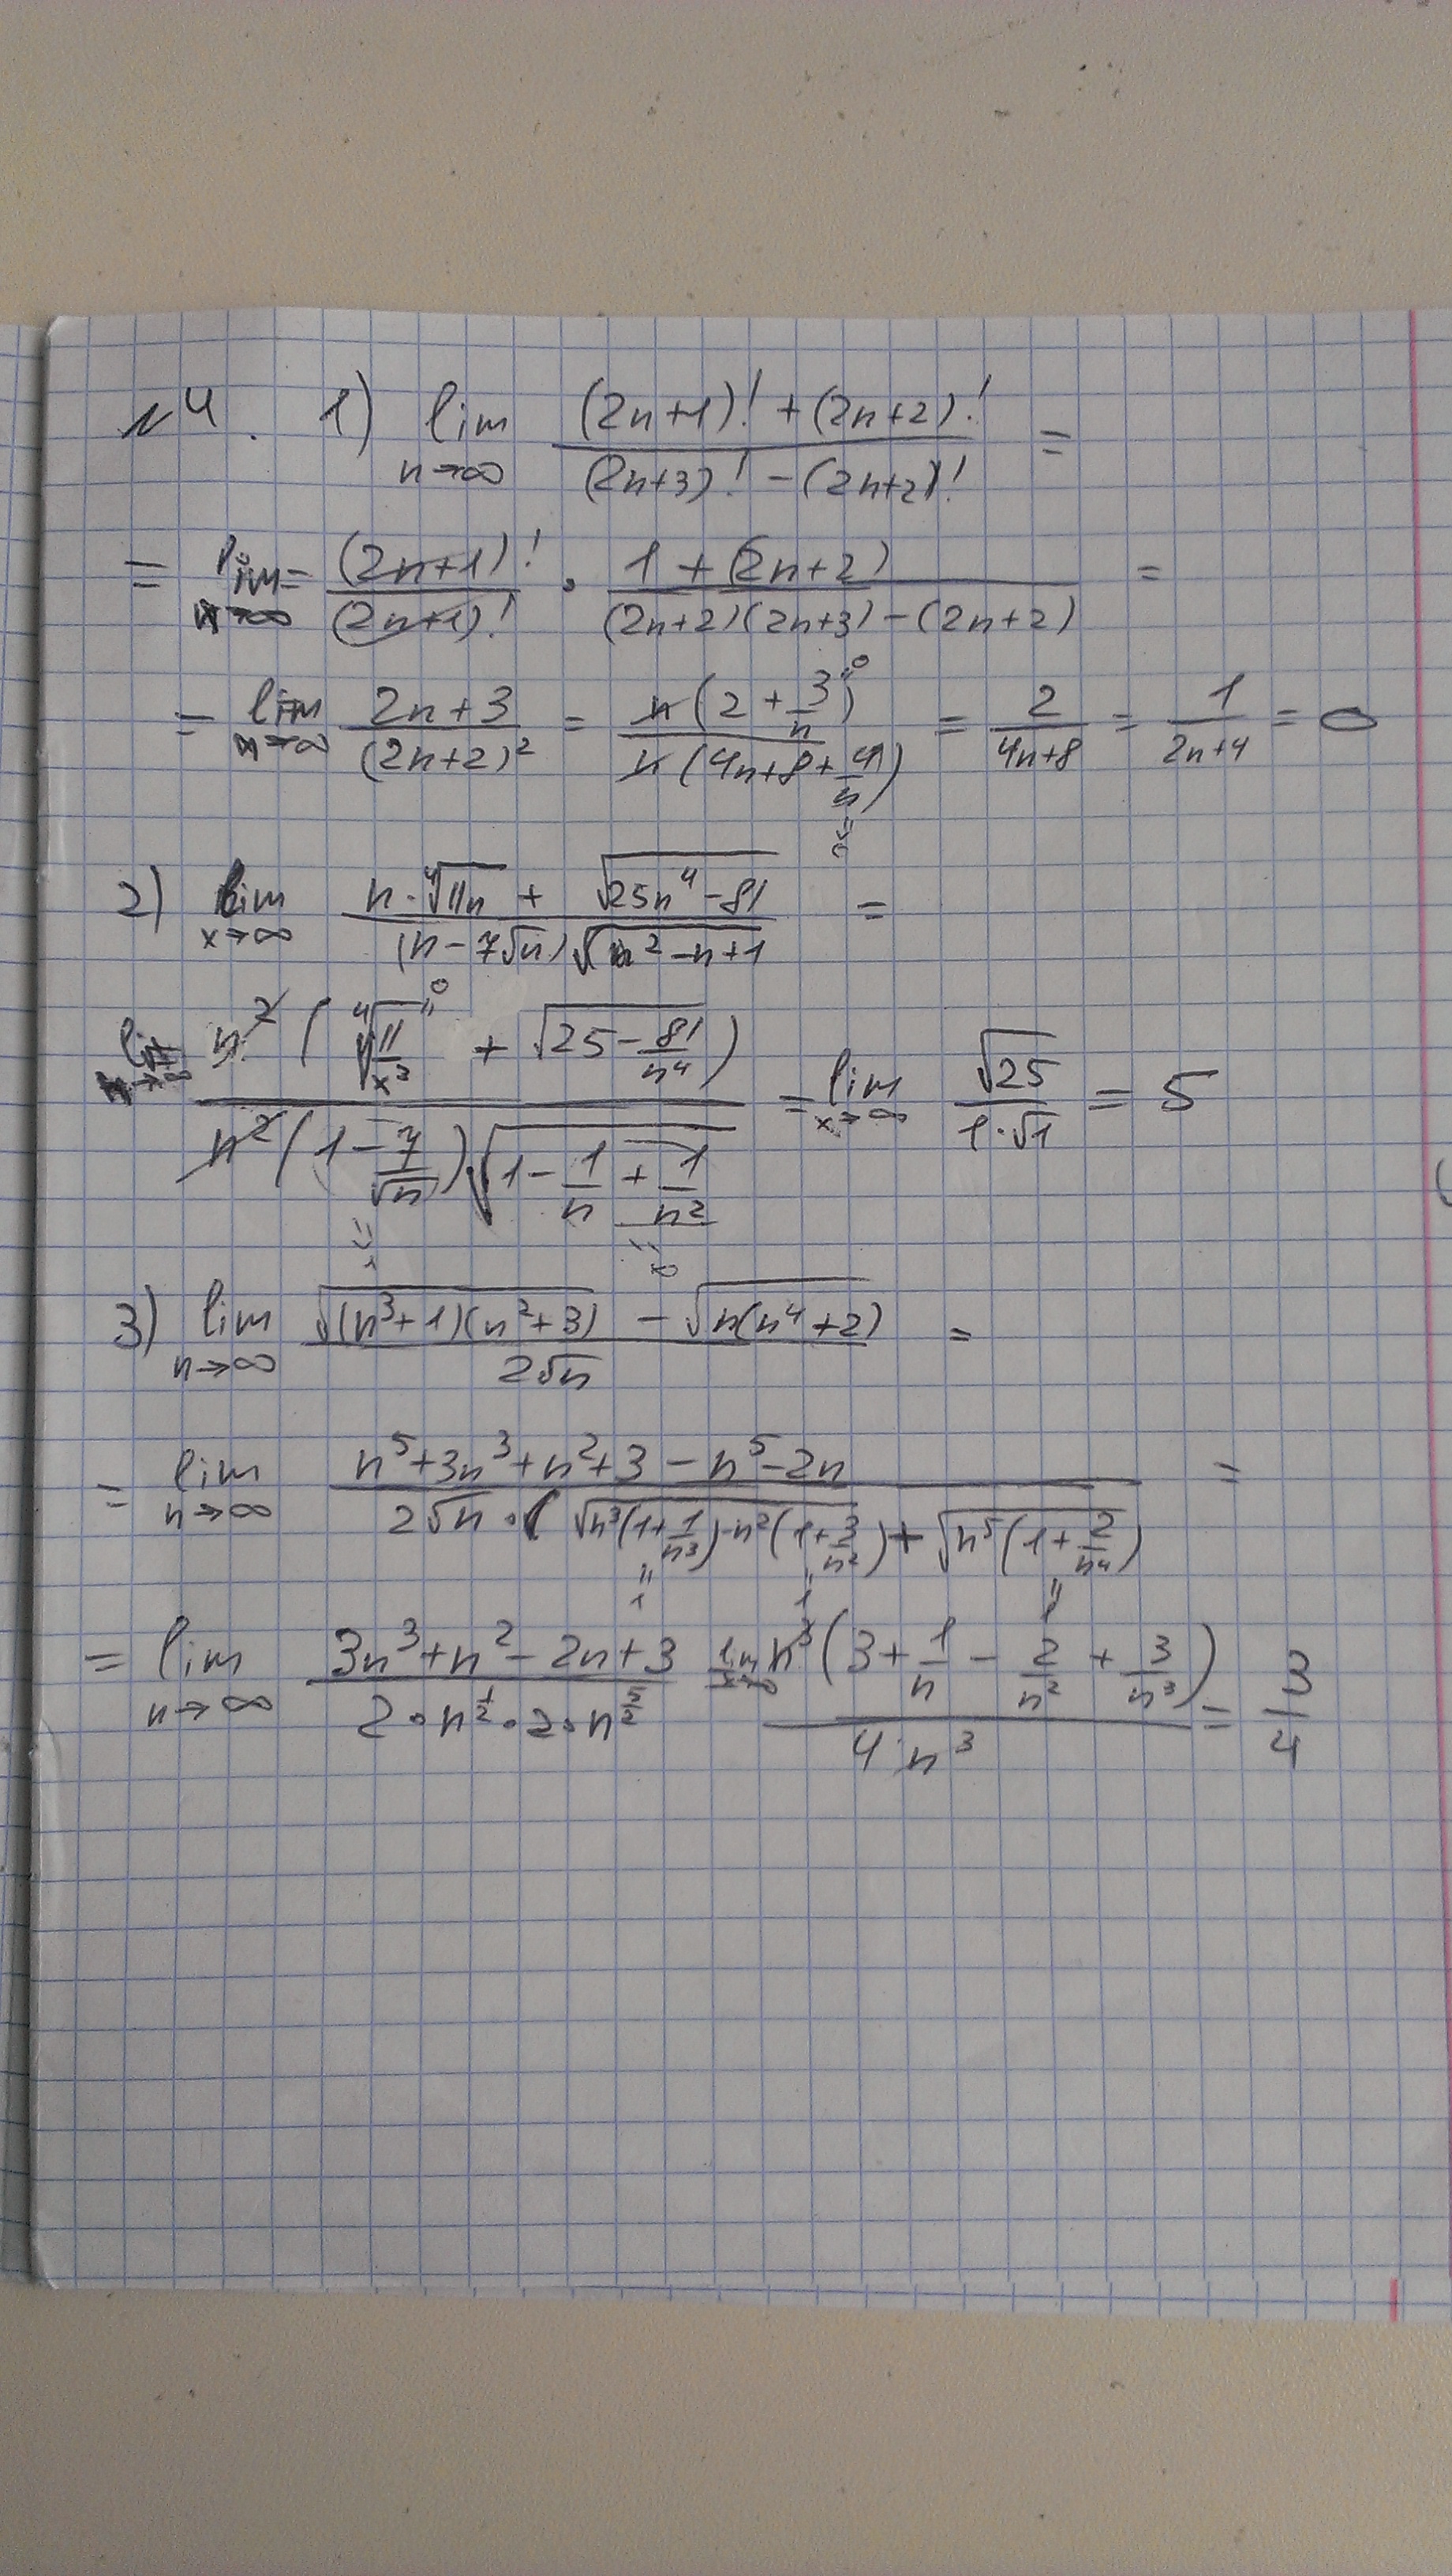 №4. 1) lim n→∞ ((2n+1)! + (2n+2)!) / ((2n+3)! - (2n+2)!) =
= lim n→∞ = (2n+1)! / (2n+1)! · (1 + (2n+2)) / ((2n+2)(2n+3) - (2n+2)) =
= lim n→∞ (2n+3) / (2n+2)² = n(2 + 3/n) / n(4n+8+4/n) = 2 / (4n+8) = 1 / (2n+4) = 0
2) lim x→∞ (n·⁴√11n + √(25n⁴-81)) / ((n-7√n)√(n²-n+1)) =
lim n→∞ n²(⁴√(11/x³) + √(25 - 81/n⁴)) / n²(1 - 7/√n)√(1 - 1/n + 1/n²) = lim x→∞ √25 / (1·√1) = 5
3) lim n→∞ (√((n³+1)(n²+3)) - √(n(n⁴+2))) / 2√n =
= lim n→∞ (n⁵+3n³+n²+3-n⁵-2n) / (2√n·(√(n³(1+1/n³)·n²(1+3/n²)) + √(n⁵(1+2/n⁴))) =
= lim n→∞ (3n³+n²-2n+3) / (2·n^(1/2)·2·n^(5/2)) lim n³(3 + 1/n - 2/n² + 3/n³) / 4n³ = 3/4